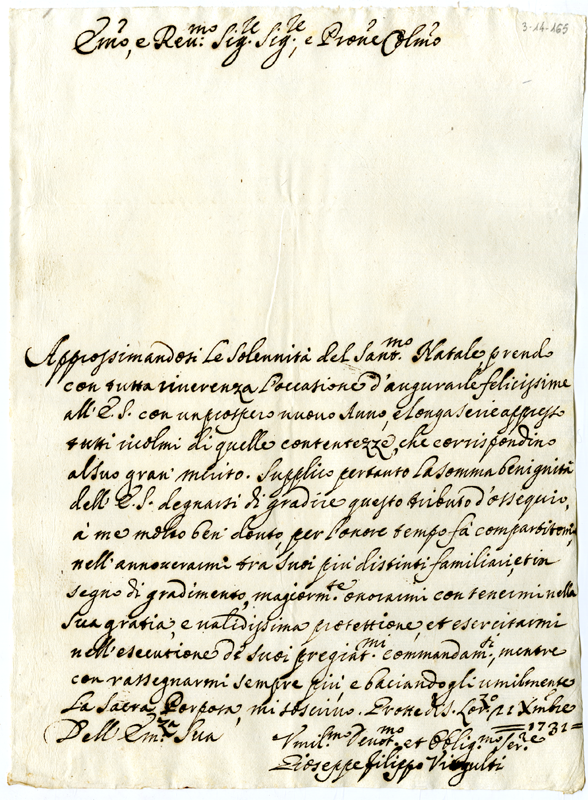 3-14-165
Emo, e Reu:mo Sig:re Sig:re, e Prone Colmo
Approssimandosi le solennità del Sant:mo Natale, prendo
con tutta riverenza l'occasione d'augurarle felicissime
all'E.S. con un prospero nuovo Anno, e longa serie appresso
tutti ricolmi di quelle contentezze, che corrispondino
al suo gran merito. Supplico pertanto la somma benignità
dell'E.S. degnarsi di gradire questo tributo d'ossequio,
à me molto ben douto, per l'onore tempo fà compartitomi,
nell'annoverarmi tra suoi più distinti familiari, et in
segno di gradimento, magiorm:te onorarmi con tenermi nella
sua gratia, e validissima protettione, et esercitarmi
nell'esecutione de suoi pregiat:mi commandam:ti, mentre
con rassegnarmi sempre più e baciandogli umilmente
La Sacra Porpora, mi soscrivo. 21 Xmbre
1731
Dell'Em:za Sua
Vmil:mo Deuot:mo et Oblig:mo Ser:re
Gioseppe Filippo Virgulti